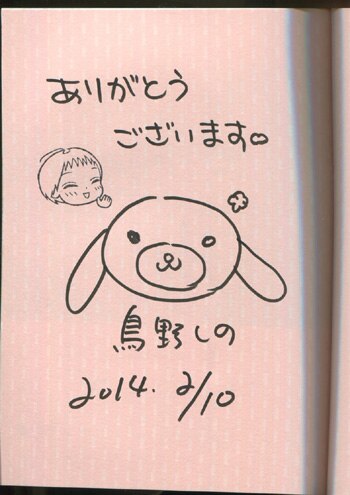 ありがとう
ございます。
鳥野しの
2014. 2/10